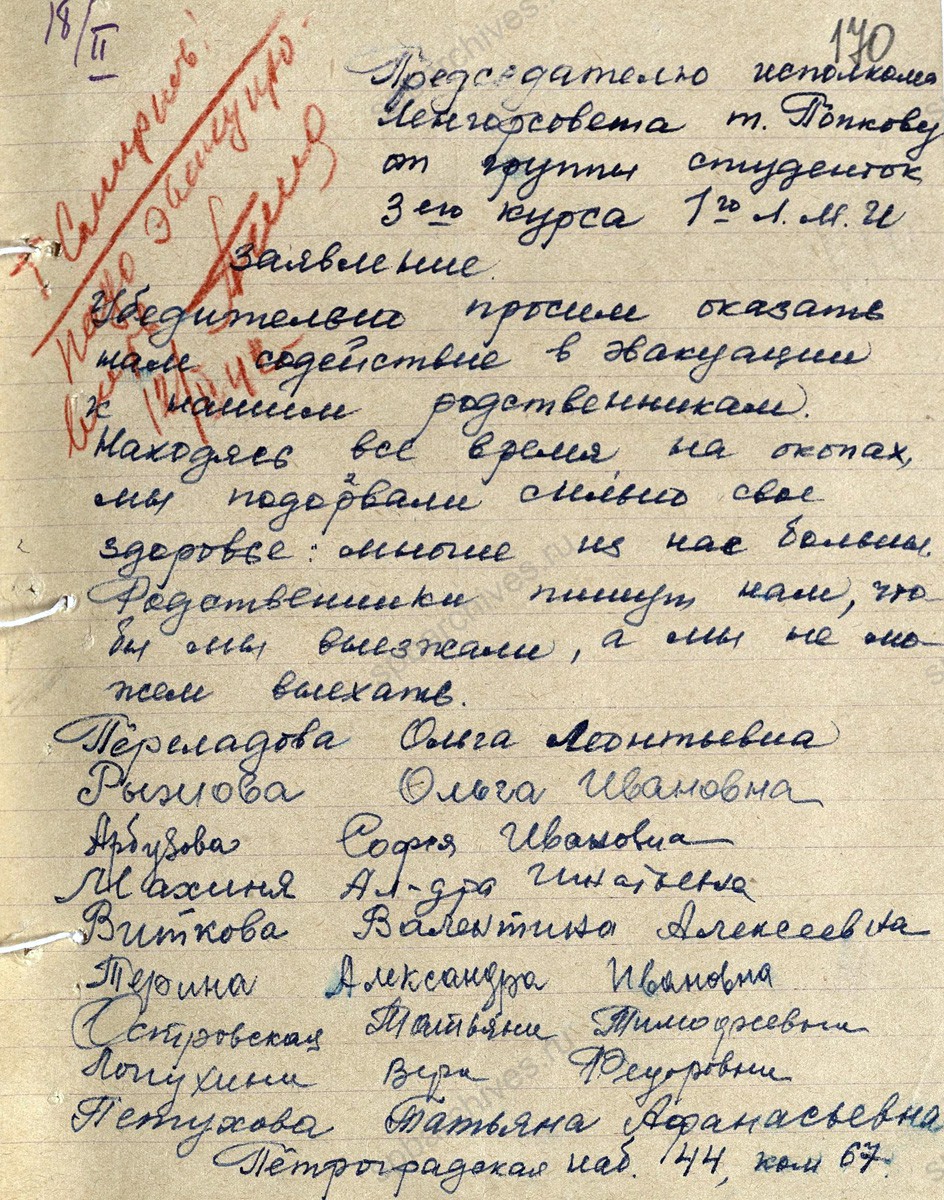 18/II
170
Председателю исполкома
Ленгорсовета т. Попкову
от группы студенток
3его курса 1го Л.М.И
Заявление.
Убедительно просим оказать
нам содействие в эвакуации
к нашим родственникам.
Находясь все время на окопах,
мы подорвали сильно свое
здоровье: многие из нас больны.
Родственники пишут нам, что-
бы мы выезжали, а мы не мо-
жем выехать.
Переладова Ольга Леонтьевна
Рыжова Ольга Ивановна
Арбузова Софья Ивановна
Махиня Ал-дра Игнатьевна
Виткова Валентина Алексеевна
Терина Александра Ивановна
Островская Татьяна Тимофеевна
Лопухина Вера Федоровна
Петухова Татьяна Афанасьевна
Петроградская наб. 44, ком 67.
т. Смирнов!
надо эвакуацию.